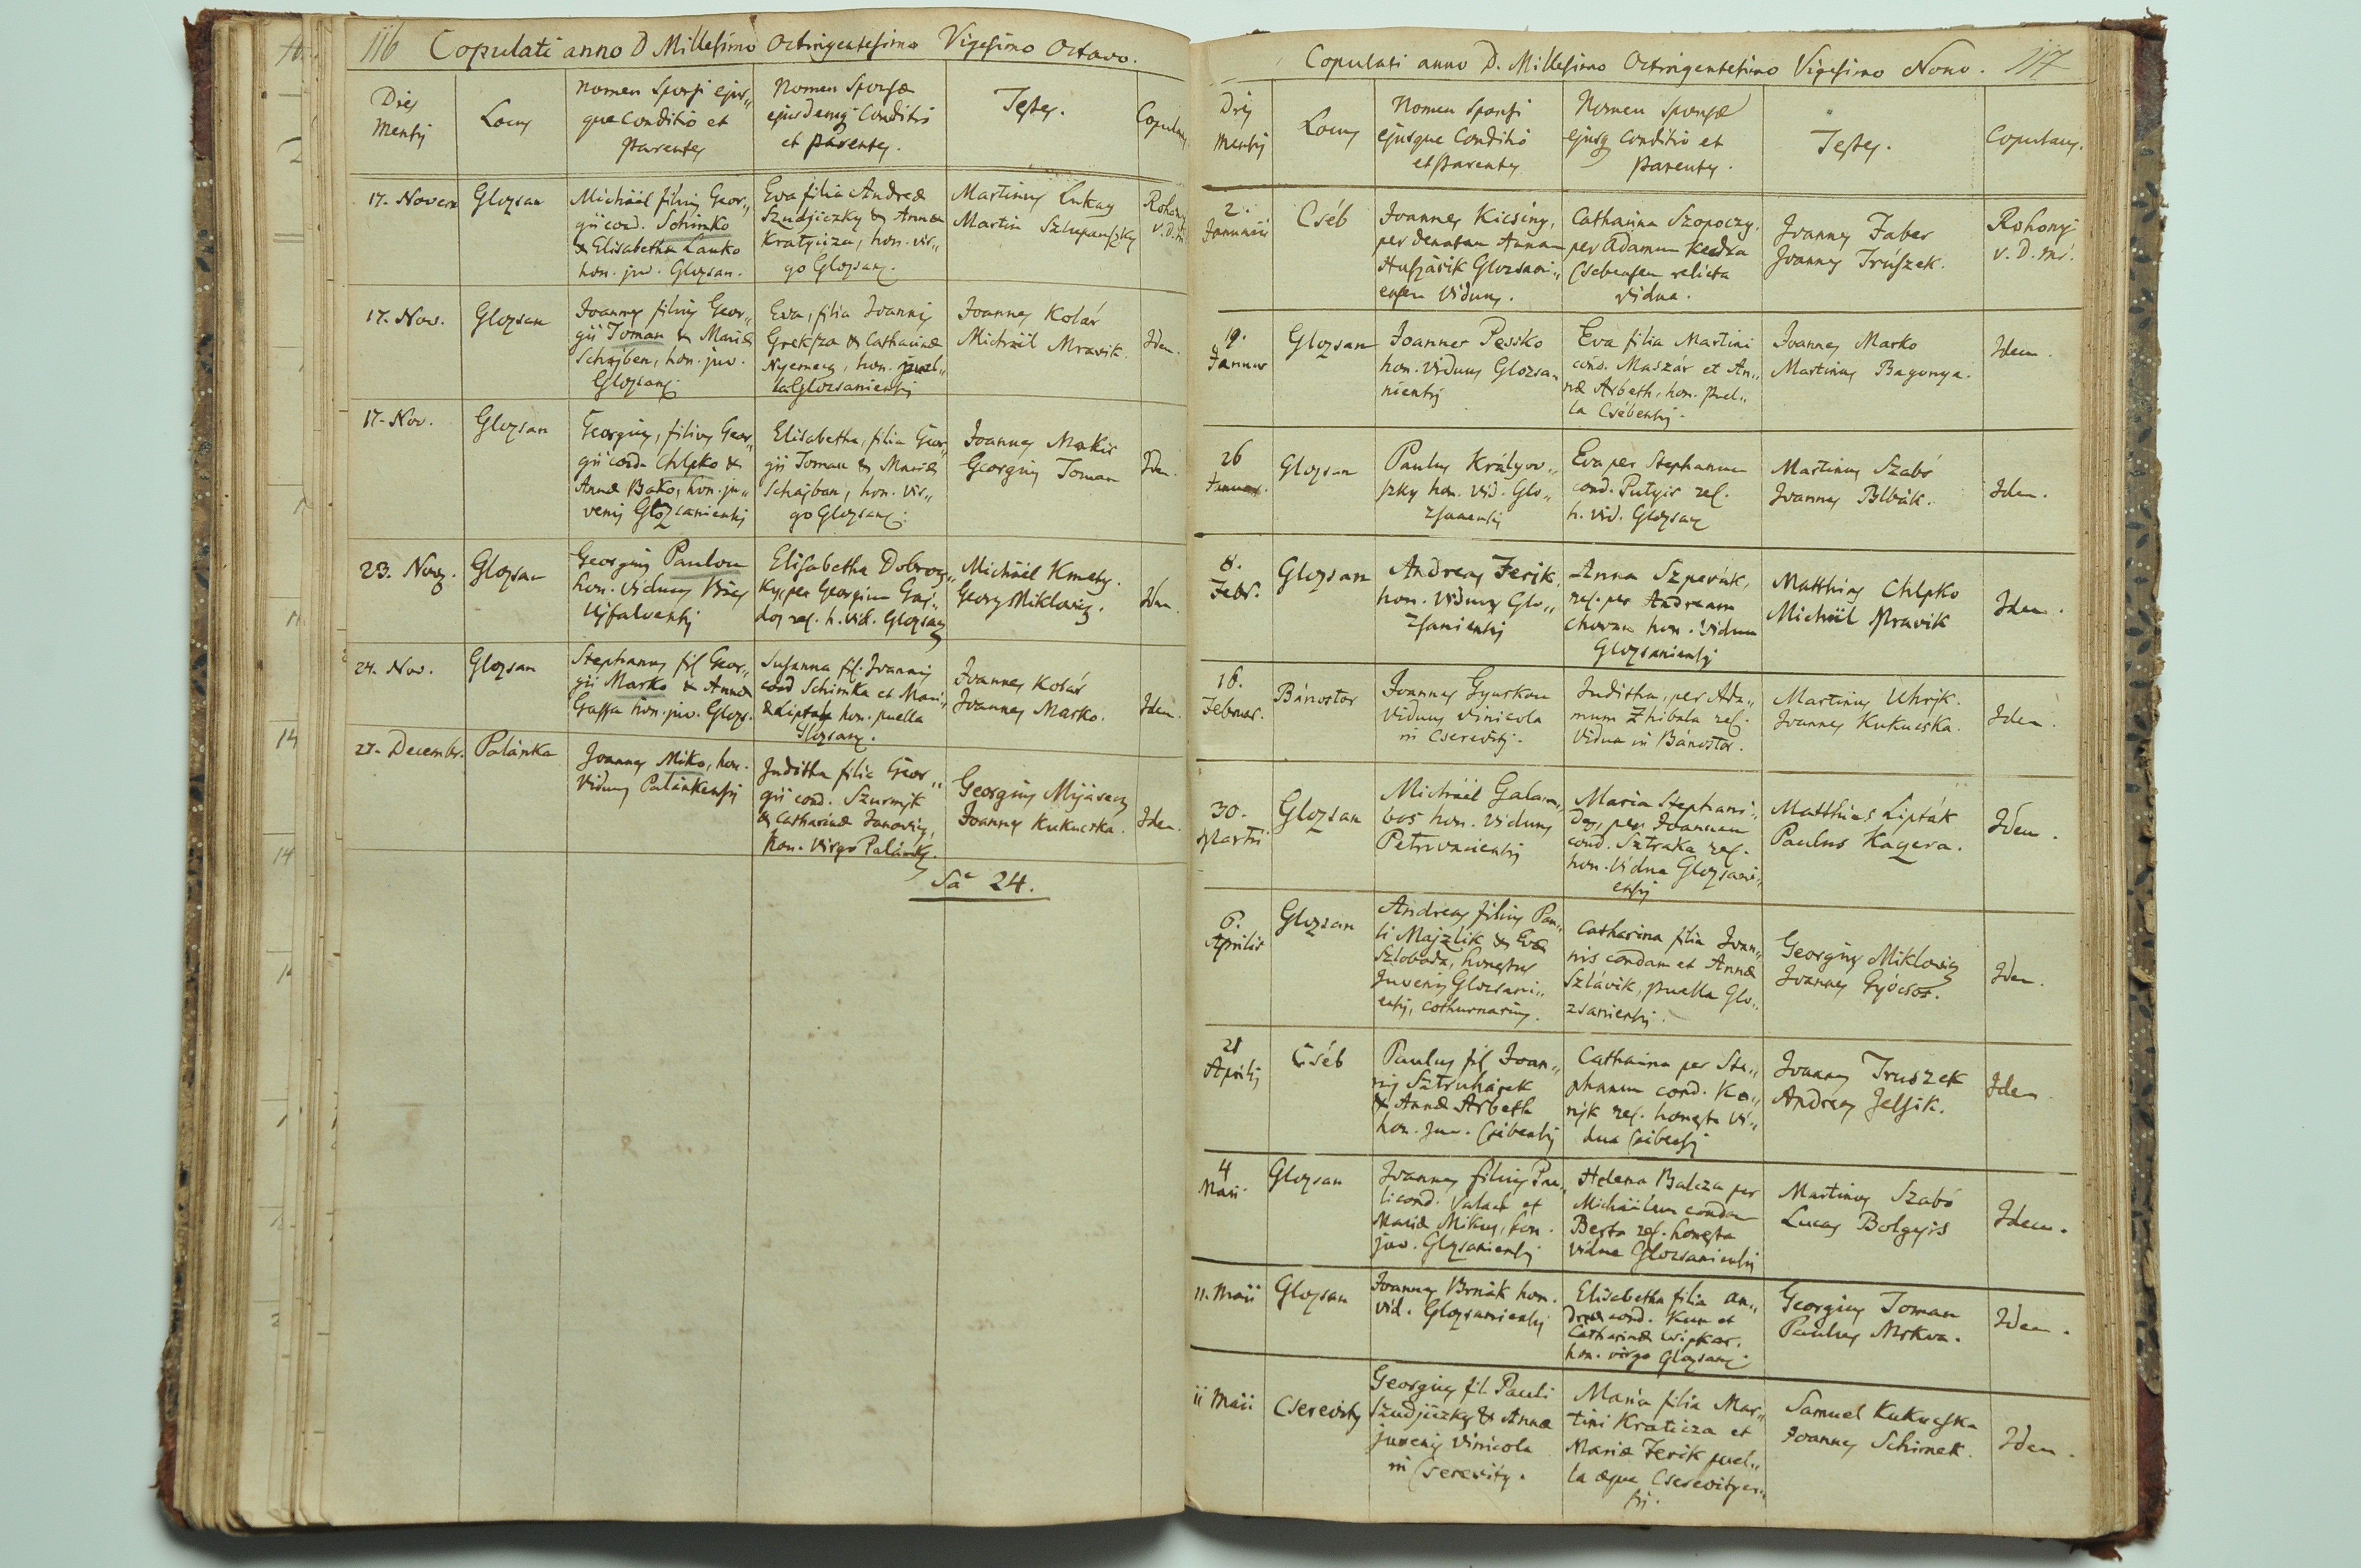 116 Copulati anno D Millesimo Octingentesimo Vigesimo Octavo.
Dies
Mensis
Locus
Nomen Sponsi ejus„
que Conditio et
parentes
Nomen Sponsæ
ejusdemq Conditio
et parentes.
Testes.
Copulans
17. Novem
Glozsan
Michäel filius Geor„
gii cond. Schimko
& Elisabethæ Lauko
hon. juv. Glozsan.
Eva filia Andreæ
Szudjiczky & Annæ
Kratyicza, hon. vir„
go Glozsan.
Martinus Lukacs
Martin Szlupanszky
Rohony
V.D.M.
17. Nov.
Glozsan
Joannes filius Geor„
gii Toman & Mariæ
Schajben, hon. juv.
Glozsan.
Eva, filia Joannis
Greksza & Catharinæ
Nyemecz, hon. puel„
la Glozsaniensis
Joannes Kolár
Michäil Mravik.
Idem.
17. Nov.
Glozsan
Georgius, filius Geor„
gii cond. Chlpko &
Annæ Bako, hon. ju„
venis Glozsaniensis
Elisabetha, filia Geor„
gii Toman & Mariæ
Schajban, hon. vir„
go Glozsan.
Joannes Makis
Georgius Toman
Idem.
23. Nov.
Glozsan
Georgius Paulou
hon. viduus Bács
Ujfaluensis
Elisabetha Dobroz„
ky, per Georgium Gaj„
dos rel. h. vid. Glozsan
Michäel Kmety.
Georg Miklovicz.
Idem
24. Nov.
Glozsan
Stephanus fil Geor„
gii Marko & Annæ
Gassa hon. juv. Glozs.
Susanna fil. Joannis
cond Schimka et Mari„
æ Liptak hon. puella
Glozsan.
Joannes Kolár
Joannes Marko.
Idem.
27. Decembr.
Palánka
Joannes Miko, hon.
viduus Palánkensis
Juditha filia Geor„
gii cond. Szurmjk
& Catharinæ Janovicz,
hon. virgo Palánk.
Georgius Mijavecz
Joannes Kukucska.
Idem.
Sa 24.
Copulati anno D. Millesimo Octingentesimo Vigesimo Nono. 117
Dies
Mensis
Locus
Nomen Sponsi
ejusque Conditio
et parentes
Nomen Sponsæ
ejusq conditio et
parentes.
Testes.
Copulans.
2.
Januarii
Cséb
Joannes Kicsiny,
per denatam Annam
Huszárik Glozsani„
ensem viduus.
Catharina Szopoczy,
per Adamum Kedra
Csebensem relicta
vidua.
Joannes Faber
Joannes Trúszek.
Rohonyi
V.D.M.
19.
Januar
Glozsan
Joannes Pessko
hon. viduus Glozsa„
niensis
Eva filia Martini
cond. Maszár et An„
næ Arbeth, hon. puel„
la Csébensis.
Joannes Marko
Martinus Bagonya.
Idem.
26
Januar.
Glozsan
Paulus Krályov„
szky hon. vid. Glo„
zsanensis
Eva per Stephanum
cond. Putyis rel.
h. vid. Glozsan
Martinus Szabó
Joannes Blbák.
Idem.
8.
Febr.
Glozsan
Andreas Ferik,
hon. viduus Glo„
zsaniensis
Anna Szpevák,
rel. per Andream
Chovan hon. vidua
Glozsaniensis
Matthias Chlpko
Michäil Mravik
Idem.
16.
Februar.
Bánostor
Joannes Gyurkou
viduus vinicola
in Cserevity.
Juditha, per Ada„
mum Zhibala rel.
vidua in Bánostor.
Martinus Uhrjk.
Joannes Kukucska.
Idem.
30.
Martii
Glozsan
Michäel Galam„
bos hon. viduus
Petrovaciensis
Maria Stephani„
des, per Joannem
cond. Sztraka rel.
hon. vidua Glozsani„
ensis
Matthias Lipták
Paulus Kagera.
Idem.
6.
Aprilis
Glozsan
Andreas filius Pau„
li Majzlik & Evæ
Szloboda, honestus
Juvenis Glozsani„
ensis, cothurnarius.
Catharina filia Joan„
nis condam et Annæ
Szlávik, puella Glo„
zsaniensis.
Georgius Miklovicz
Joannes Gyócsos.
Idem.
21
Aprilis
Cséb
Paulus fil Joan„
nis Sztruhárek
& Annæ Arbeth
hon. Juv. Csibensis
Catharina per Ste„
phanum cond. Ko„
rijk rel. honesta vi„
dua Csibensis
Joannes Truszek
Andreas Jelsik.
Idem
4
Maii
Glozsan
Joannes filius Pau„
li cond. Valach et
Mariæ Mikus, hon.
juv. Glozsaniensis
Helena Balcza per
Michäelem condam
Berta rel. honesta
vidua Glozsaniensis
Martinus Szabó
Lucas Bolgyis
Idem.
11. Maii
Glozsan
Joannes Brnák hon.
vid. Glozsaniensis
Elisabetha filia An„
dreæ cond. Kun et
Catharinæ Csipkar.
hon. virgo Glozsan.
Georgius Toman
Paulus Mrkva.
Idem.
11 Maii
Cserevity
Georgius fil. Pauli
Szudjiczky & Annæ
juvenis vinicola
in Cserevity.
Maria filia Mar„
tini Kraticza et
Mariæ Ferik puel„
la æque Cserevityen„
sis.
Samuel Kukucska
Joannes Schimek.
Idem.